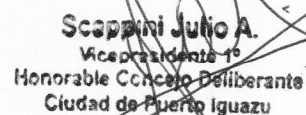 Scappini Julio A.
Vicepresidente 1º
Honorable Concejo Deliberante
Ciudad de Puerto Iguazu